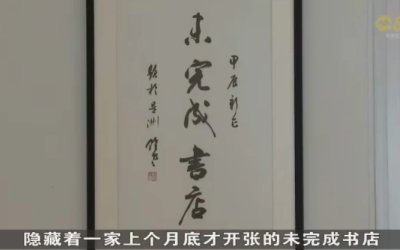 未完成书店
甲辰新正
题于星洲
隐藏着一家上个月底才开张的未完成书店